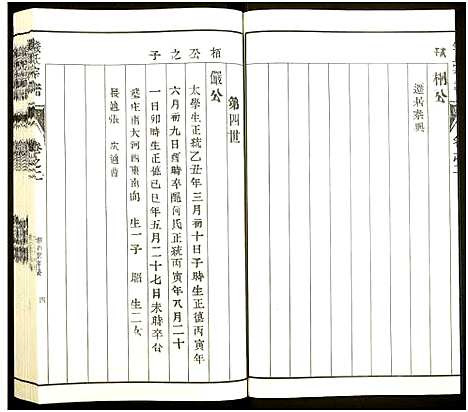 桐公
遷居泰興
第四世
栢公之子
儼公
太學生正統乙丑年三月初十日子時生正德丙寅年
六月初九日酉時卒配何氏正統丙寅年八月二十
一日卯時生正德己巳年五月二十七日未時卒合
葬庄南大河西東南向 生一子 昭 生二女
長適張 次適曹
卷之二
四